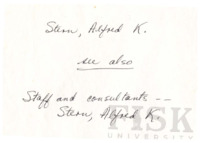 Stern, Alfred K.
see also
Staff and consultants --
Stern, Alfred K
FISK
UNIVERSITY